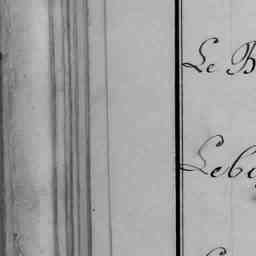 Le B
Leb